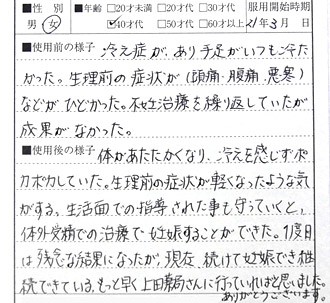 ■性 別 ■年齢 □20才未満 □20才代 □30才代 服用開始時期
男・女 ☑40才代 □50才代 □60才以上 21年3月 日
■使用前の様子 冷え症があり手足がいつも冷た
かった。生理前の症状が(頭痛・腹痛、悪寒)
などがひどかった。不妊治療を繰り返していたが
成果がなかった。
■使用後の様子 体があたたかくなり、冷えを感じずポ
カポカしていた。生理前の症状が軽くなったような気
がする、生活面での指導された事も守っていくと、
体外受精での治療で妊娠することができた。1度目
は残念な結果になったが、現在、続けて妊娠でき継
続できている。もっと早く上田薬局さんに行っていればと思いました。
ありがとうございます。